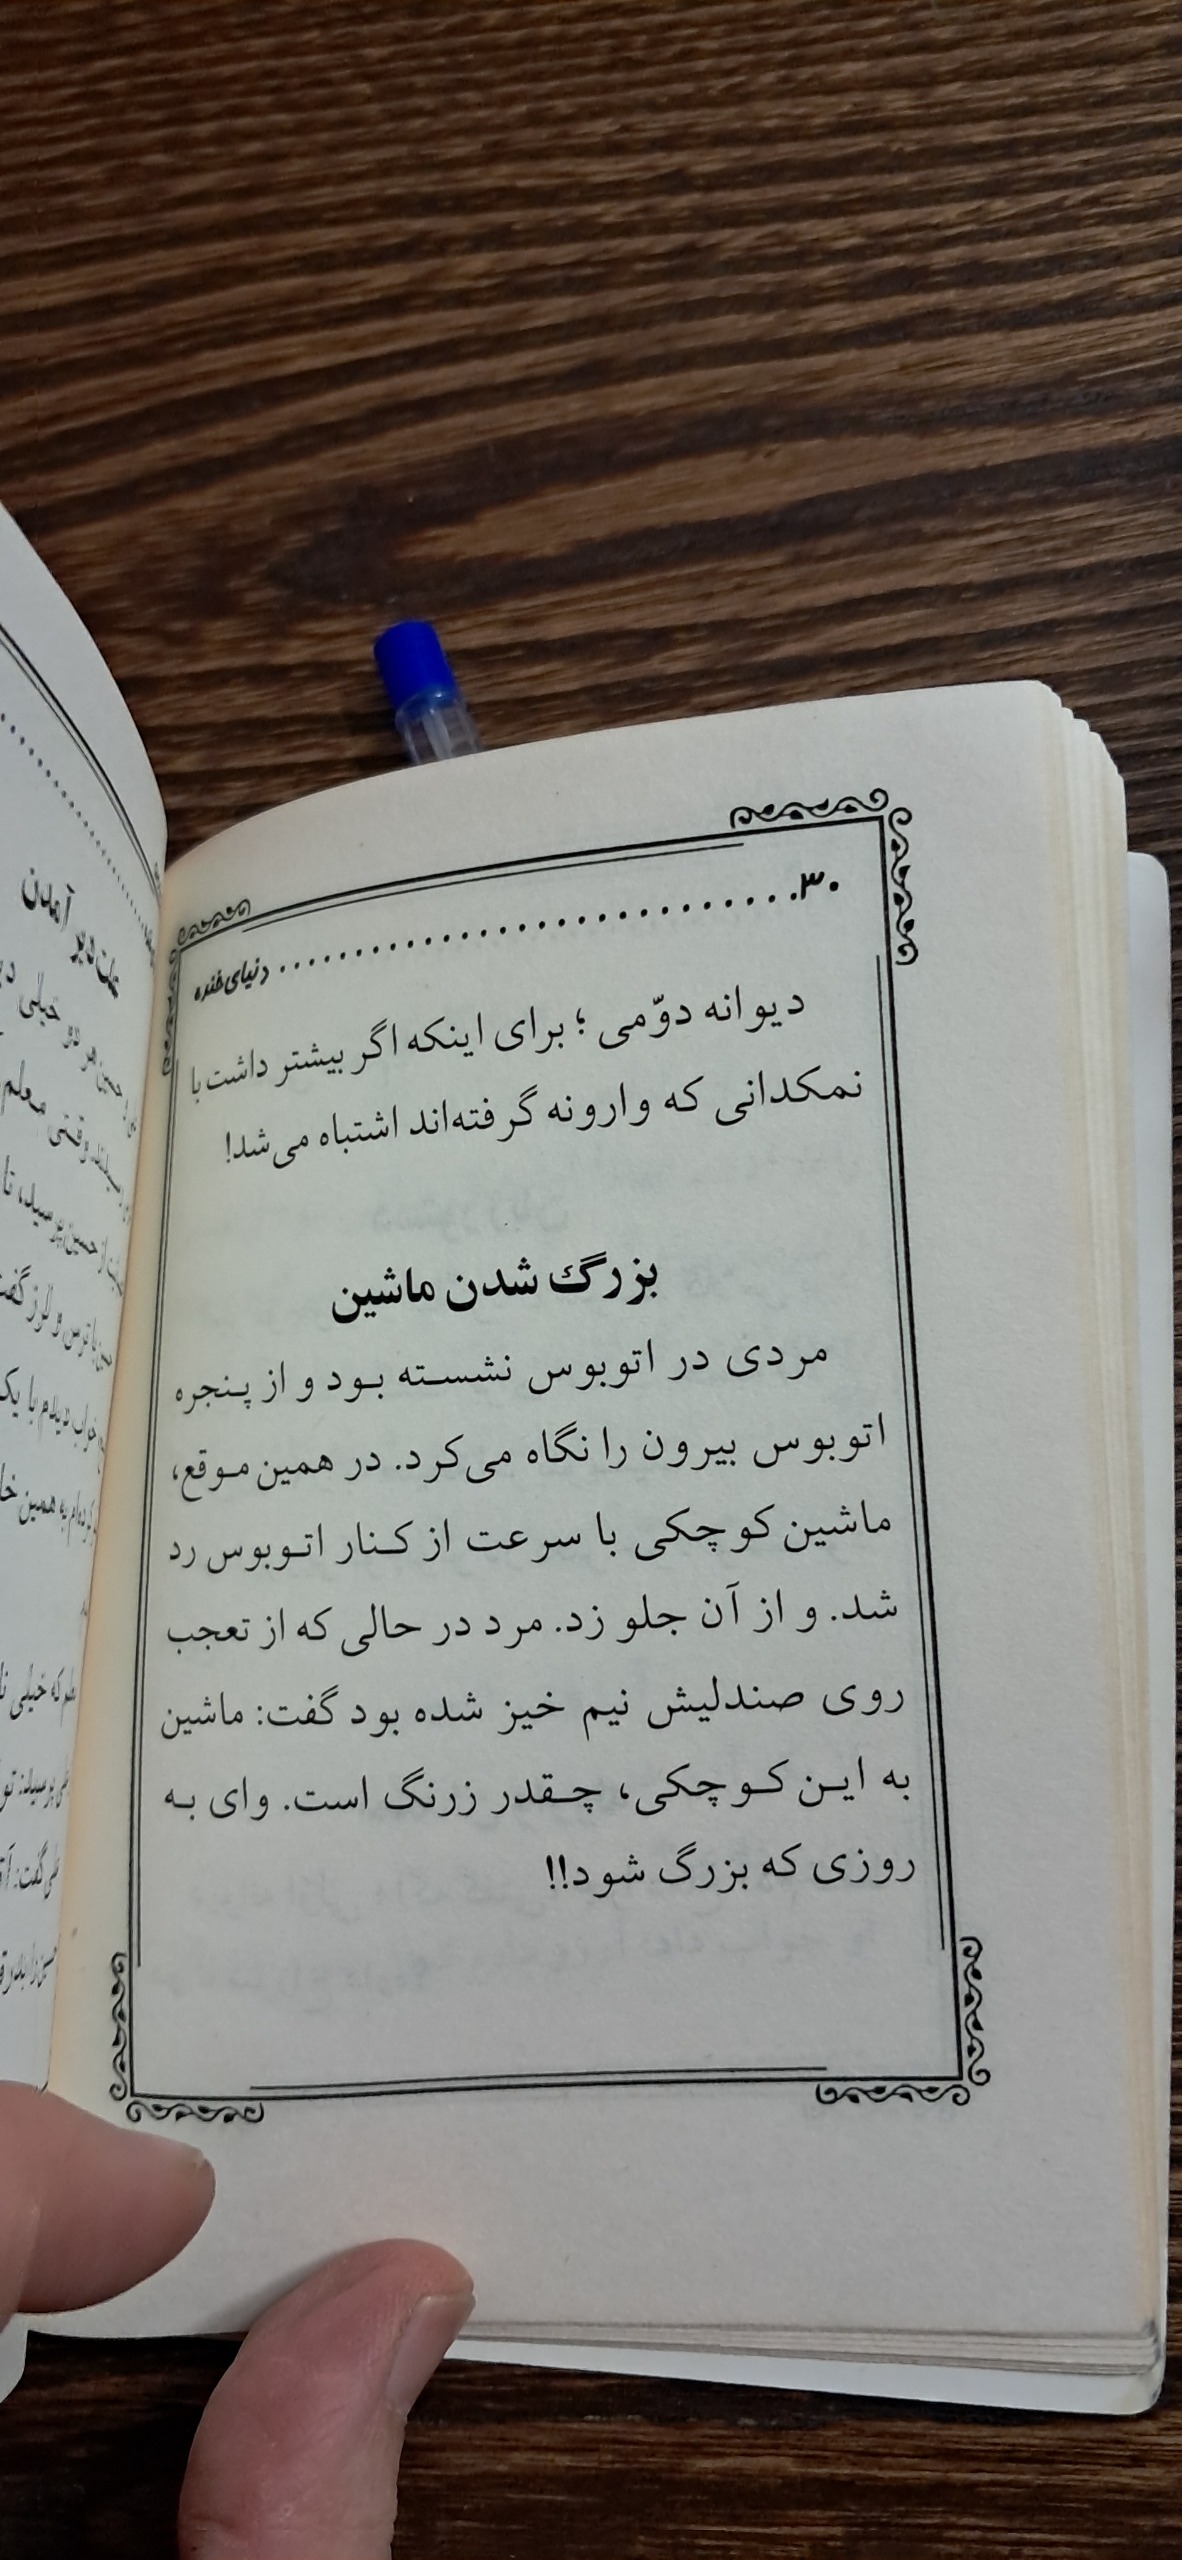 ۳۰ .......................... دنیای خنده
دیوانه دوّمی ؛ برای اینکه اگر بیشتر داشت با
نمکدانی که وارونه گرفته‌اند اشتباه می‌شد!
بزرگ شدن ماشین
مردی در اتوبوس نشسته بود و از پنجره
اتوبوس بیرون را نگاه می‌کرد. در همین موقع،
ماشین کوچکی با سرعت از کنار اتوبوس رد
شد. و از آن جلو زد. مرد در حالی که از تعجب
روی صندلیش نیم خیز شده بود گفت: ماشین
به این کوچکی، چقدر زرنگ است. وای به
روزی که بزرگ شود!!